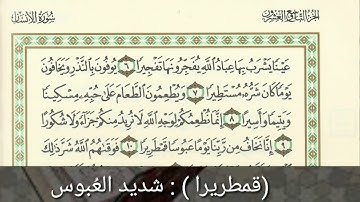 سُورَةُ الإِنسَان
عَيْنًا يَشْرَبُ بِهَا عِبَادُ اللَّهِ يُفَجِّرُونَهَا تَفْجِيرًا ٦ يُوفُونَ بِالنَّذْرِ وَيَخَافُونَ
يَوْمًا كَانَ شَرُّهُ مُسْتَطِيرًا ٧ وَيُطْعِمُونَ الطَّعَامَ عَلَىٰ حُبِّهِ مِسْكِينًا
وَيَتِيمًا وَأَسِيرًا ٨ إِنَّمَا نُطْعِمُكُمْ لِوَجْهِ اللَّهِ لَا نُرِيدُ مِنكُمْ جَزَاءً وَلَا شُكُورًا
٩ إِنَّا نَخَافُ مِن رَّبِّنَا يَوْمًا عَبُوسًا قَمْطَرِيرًا ١٠ فَوَقَاهُمُ اللَّهُ شَرَّ ذَٰلِكَ
(قمطريرا ) : شديد العُبوس